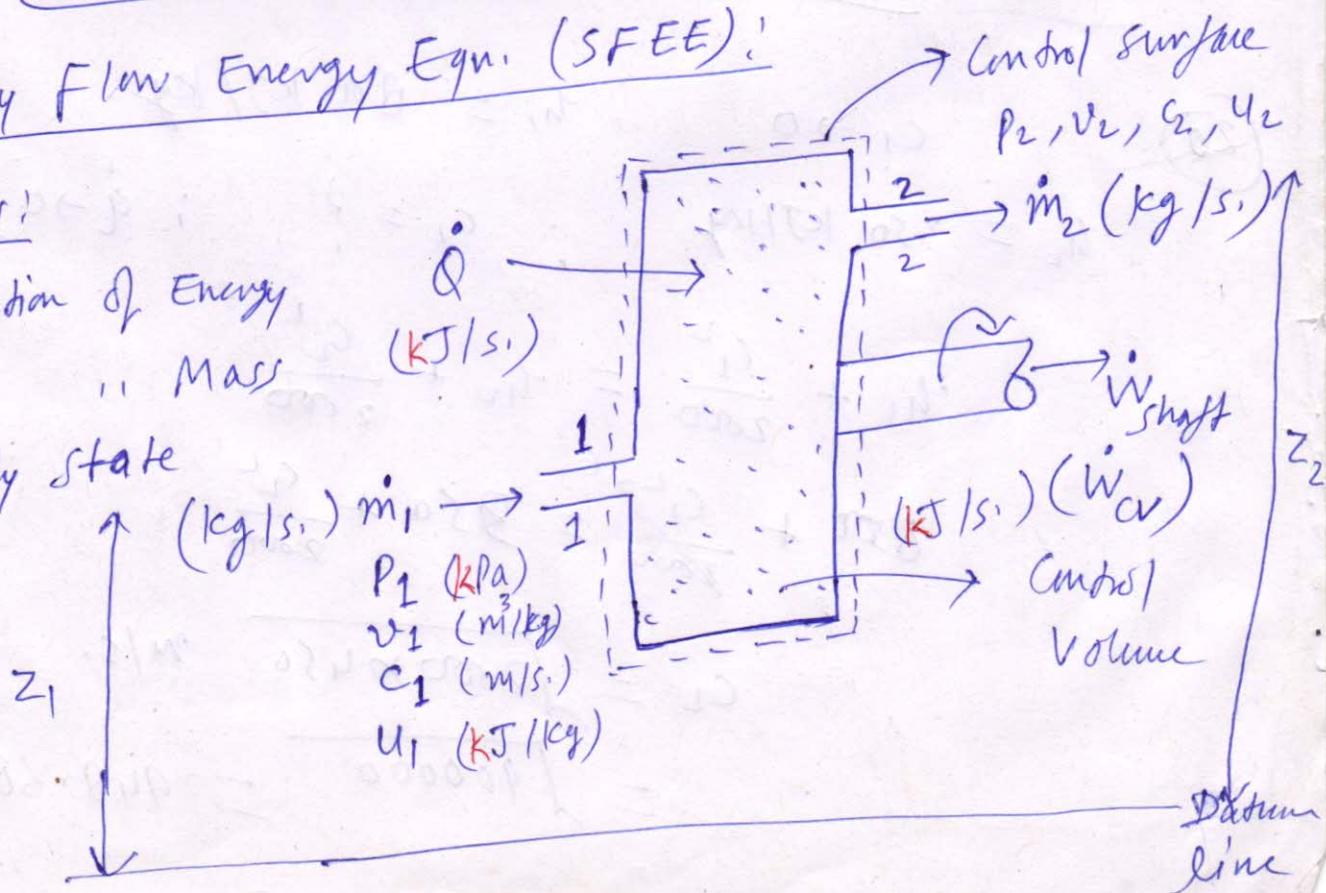 Flow Energy Eqn. (SFEE):
Control Surface
P2, v2, C2, u2
2
ṁ2 (kg/s.)
2
Q̇
(kJ/s.)
of Energy
,, Mass
Ẇshaft
(kJ/s.) (Ẇcv)
Z2
State
1
(kg/s.) ṁ1
1
P1 (kPa)
v1 (m³/kg)
C1 (m/s.)
u1 (kJ/kg)
Control
Volume
Z1
Datum
line